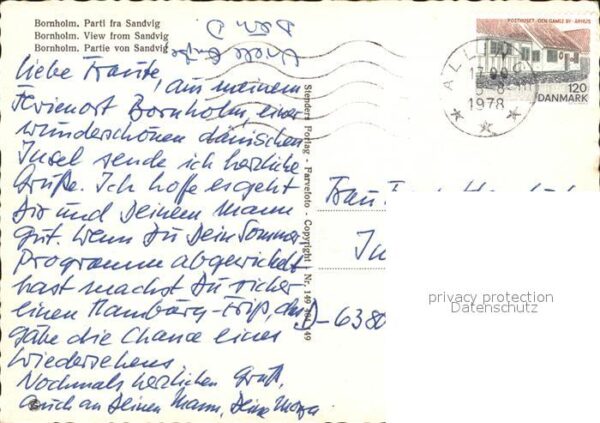 Bornholm. Parti fra Sandvig
Bornholm. View from Sandvig
Bornholm. Partie von Sandvig
Liebe Traute, aus meinem
Ferienort Bornholm, einer
wunderschönen dänischen
Insel sende ich herzliche
Grüße. Ich hoffe es geht
Dir und Deinem Mann
gut. Wenn Du Dein Sommer
Programm abgewickelt
hast machst Du sicher
einen Hamburg-Trip, das
gäbe die Chance eines
Wiedersehens
Nochmals herzlichen Gruß,
auch an Deinen Mann, Deine
Stenders Forlag - Farvefoto - Copyright - Nr. 149
POSTHUSET · DEN GAMLE BY · ÅRHUS
120
DANMARK
ALLI
17.00
1978
Frau
D-6380
privacy protection
Datenschutz